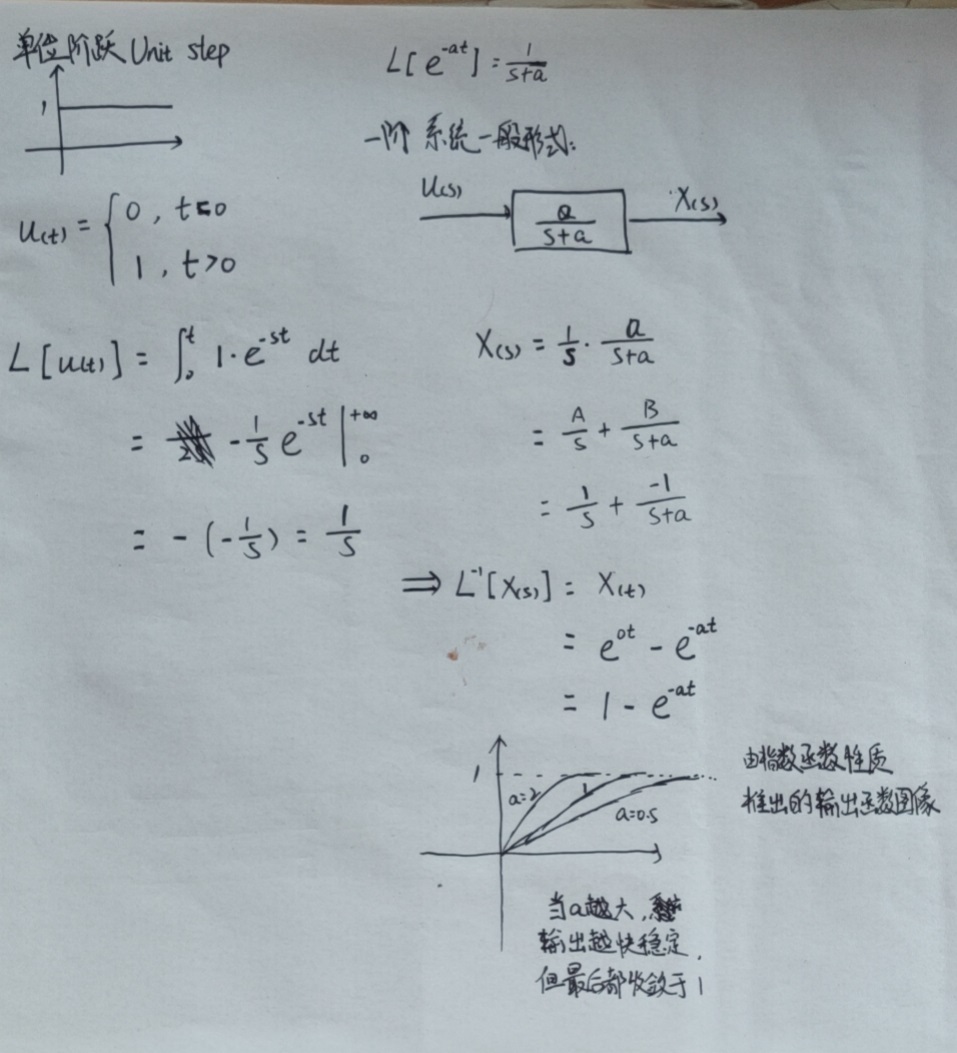 单位阶跃 Unit step
1
u(t) = { 0 , t=0
1 , t>0
L [u(t)] = ∫₀ᵗ 1·e^{-st} dt
= -1/s e^{-st} |₀^{+∞}
= -(-1/s) = 1/s
L[e^{-at}] = 1/(s+a)
一阶系统一般形式:
U(s) a/(s+a) X(s)
X(s) = 1/s · a/(s+a)
= A/s + B/(s+a)
= 1/s + -1/(s+a)
⇒ L⁻¹[X(s)] = X(t)
= e^{0t} - e^{-at}
= 1 - e^{-at}
1
a=2 1 a=0.5
由指数函数性质
推出的输出函数图像
当a越大,
输出越快稳定,
但最后都收敛于1